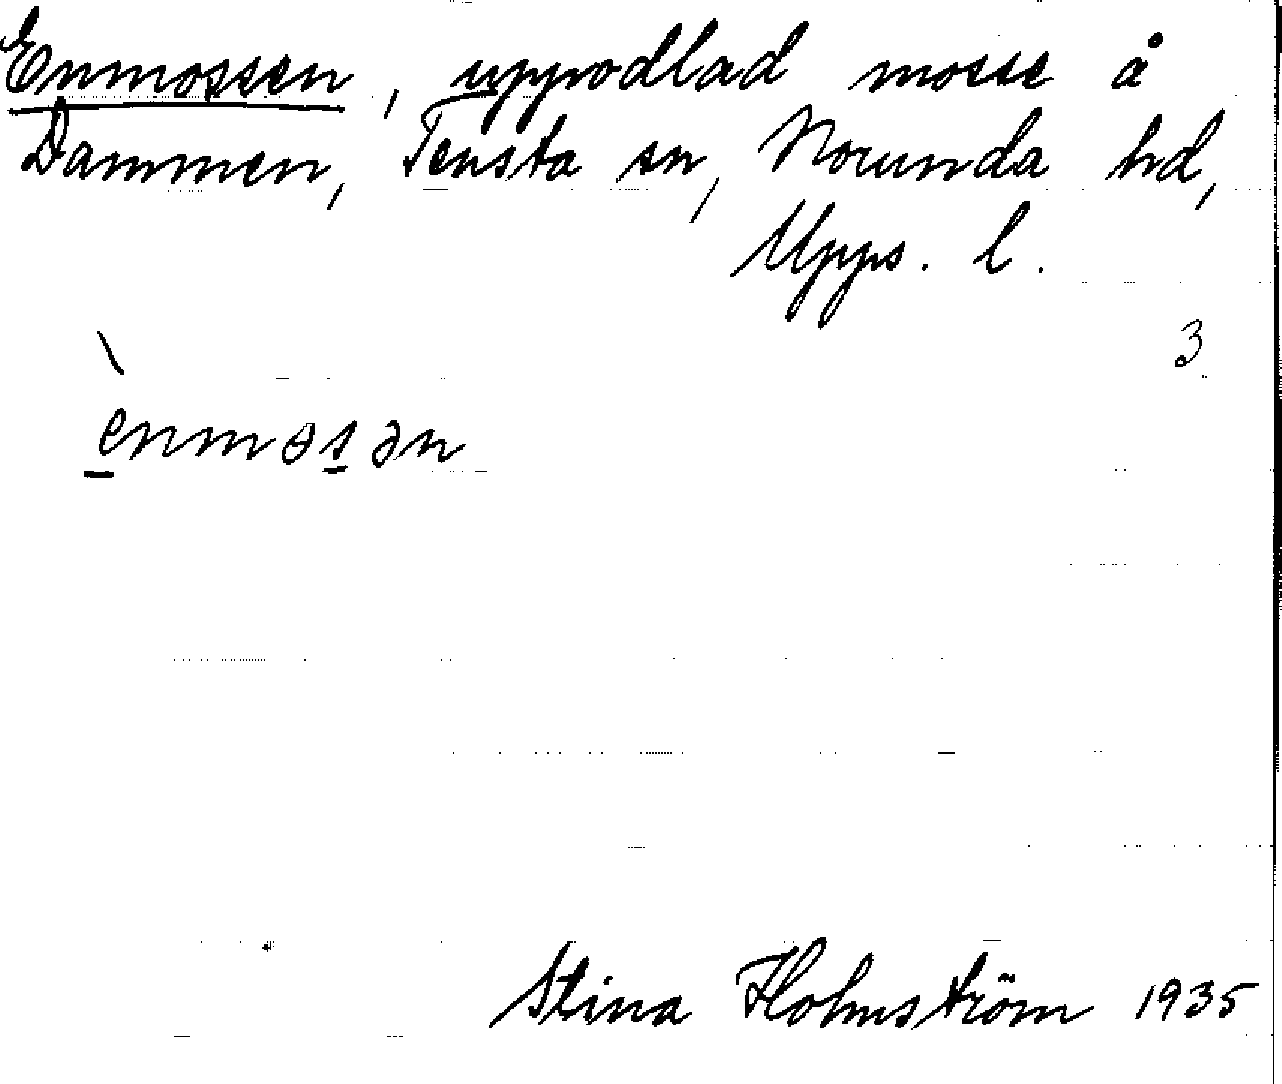 Enmossen, uppodlad mosse å
Dammen, Tensta sn, Norunda hd,
Upps. l.
3
\
e̠nmɵs̠ən
Stina Holmström 1935